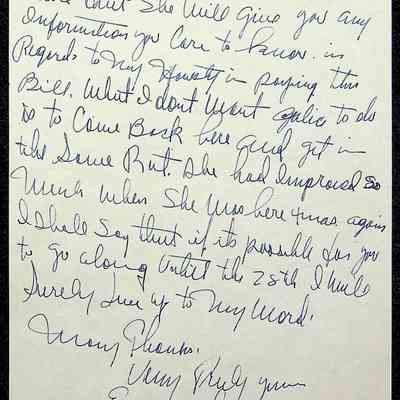 She will give you any
Information you Care to know. in
Regards to my Honesty in paying this
Bill. What I dont want to do
is to Come Back here and get in
the Same Rut. She had Improved so
Much when She was here Xmas again
I Shall Say that if its possible for you
to go along until the 28th I will
Surely live up to My Word.
Many Thanks.
Very Truly yours